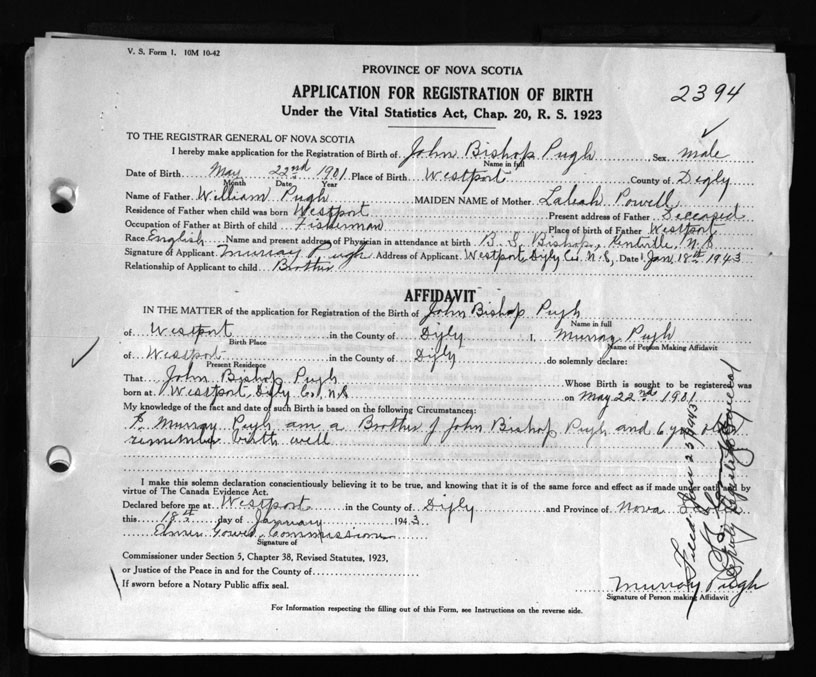 V. S. Form 1. 10M 10-42
PROVINCE OF NOVA SCOTIA
APPLICATION FOR REGISTRATION OF BIRTH
2394
Under the Vital Statistics Act, Chap. 20, R. S. 1923
TO THE REGISTRAR GENERAL OF NOVA SCOTIA
I hereby make application for the Registration of Birth of John Bishop Pugh Sex male
Name in full
Date of Birth May 22nd 1901 Place of Birth Westport County of Digby
Month Date Year
Name of Father William Pugh MAIDEN NAME of Mother Laleah Powell
Residence of Father when child was born Westport Present address of Father Deceased
Occupation of Father at Birth of child Fisherman Place of birth of Father Westport
Race English Name and present address of Physician in attendance at birth B. S. Bishop, Kentville, N. S
Signature of Applicant Murray Pugh Address of Applicant Westport Digby Co. N. S, Date Jan 18th 1943
Relationship of Applicant to child Brother
AFFIDAVIT
IN THE MATTER of the application for Registration of the Birth of John Bishop Pugh
Name in full
of Westport in the County of Digby I, Murray Pugh
Birth Place Name of Person Making Affidavit
of Westport in the County of Digby do solemnly declare:
Present Residence
That John Bishop Pugh Whose Birth is sought to be registered was
born at Westport Digby Co. N S on May 22nd 1901
My knowledge of the fact and date of such Birth is based on the following Circumstances:
I Murray Pugh am a Brother of John Bishop Pugh and 6 yrs older
remember birth well
I make this solemn declaration conscientiously believing it to be true, and knowing that it is of the same force and effect as if made under oath and by
virtue of The Canada Evidence Act.
Declared before me at Westport in the County of Digby and Province of Nova Scotia
this 18th day of January 1943
Elmer Commissioner
Signature of
Commissioner under Section 5, Chapter 38, Revised Statutes, 1923,
or Justice of the Peace in and for the County of
If sworn before a Notary Public affix seal.
Murray Pugh
Signature of Person making Affidavit
For Information respecting the filling out of this Form, see Instructions on the reverse side.
Filed Jan 23 1943
Deputy Registrar General